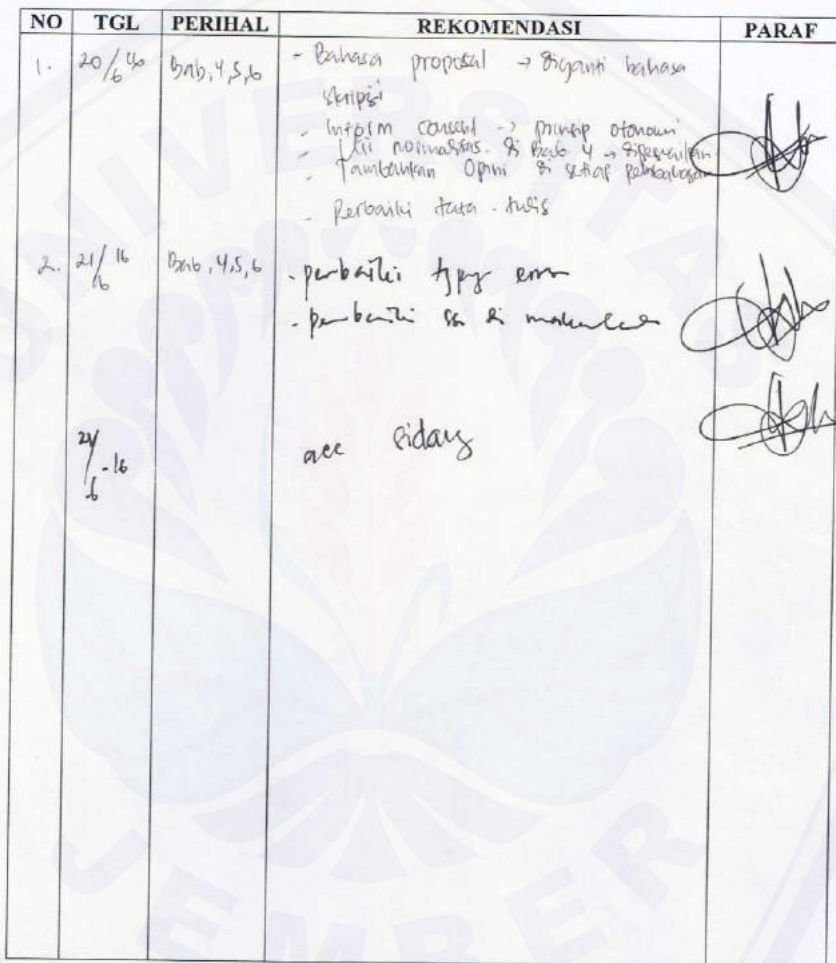 NO TGL PERIHAL REKOMENDASI PARAF
1. 20/6 Bab, 4,5,6 - Bahasa proposal → diganti bahasa
skripsi
- Inform consent → prinsip otonomi
- Uji normalitas di Bab 4 →
- Tambahkan Opini di setiap pembahasan
- Perbaiki tata - tulis
2. 21/6 16 Bab, 4,5,6 - perbaiki typy error
- perbaiki di
21/6 - 16 acc sidang
UNIVERSITAS
JEMBER